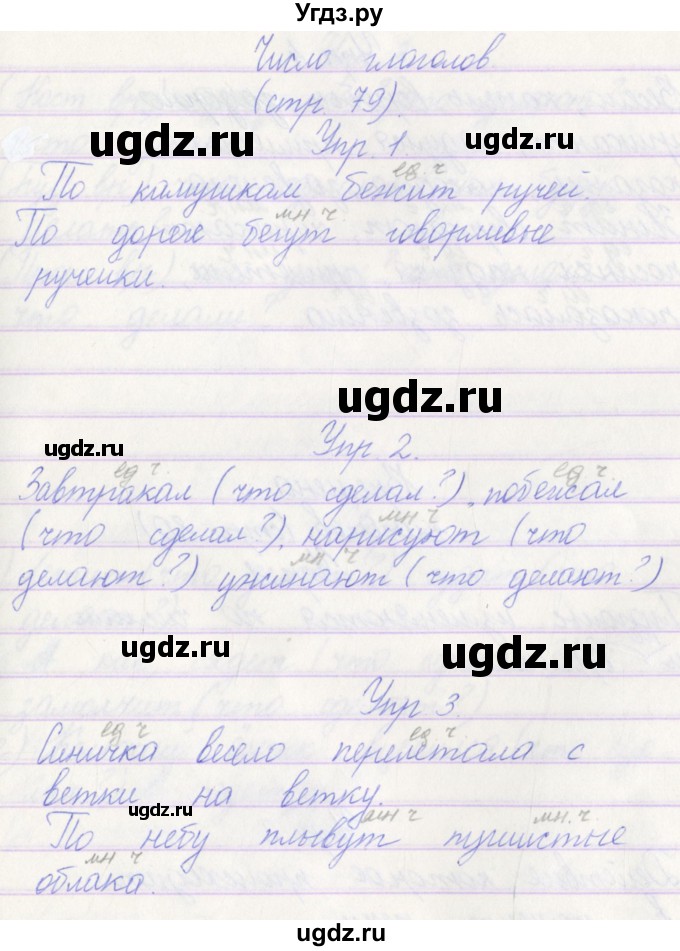 Угдз.ру
Число глаголов.
(стр. 79).
ugdz.ru Упр. 1 ugdz.ru
ед. ч
По камушкам бежит ручей.
мн ч
По дороге бегут говорливые
ручейки.
ugdz.ru
Упр 2.
ugdz.ru
ед ч. ед ч.
Завтракал (что сделал?), побежал
мн ч
(что сделал?), нарисуют (что
мн ч
делают?) ужинают (что делают?)
ugdz.ru ugdz.ru
Упр 3.
ед ч ед ч.
Синичка весело перелетала с
ветки на ветку.
ugdz.ru
мн ч мн. ч
По небу плывут пушистые
мн ч
облака.
ugdz.ru ugdz.ru